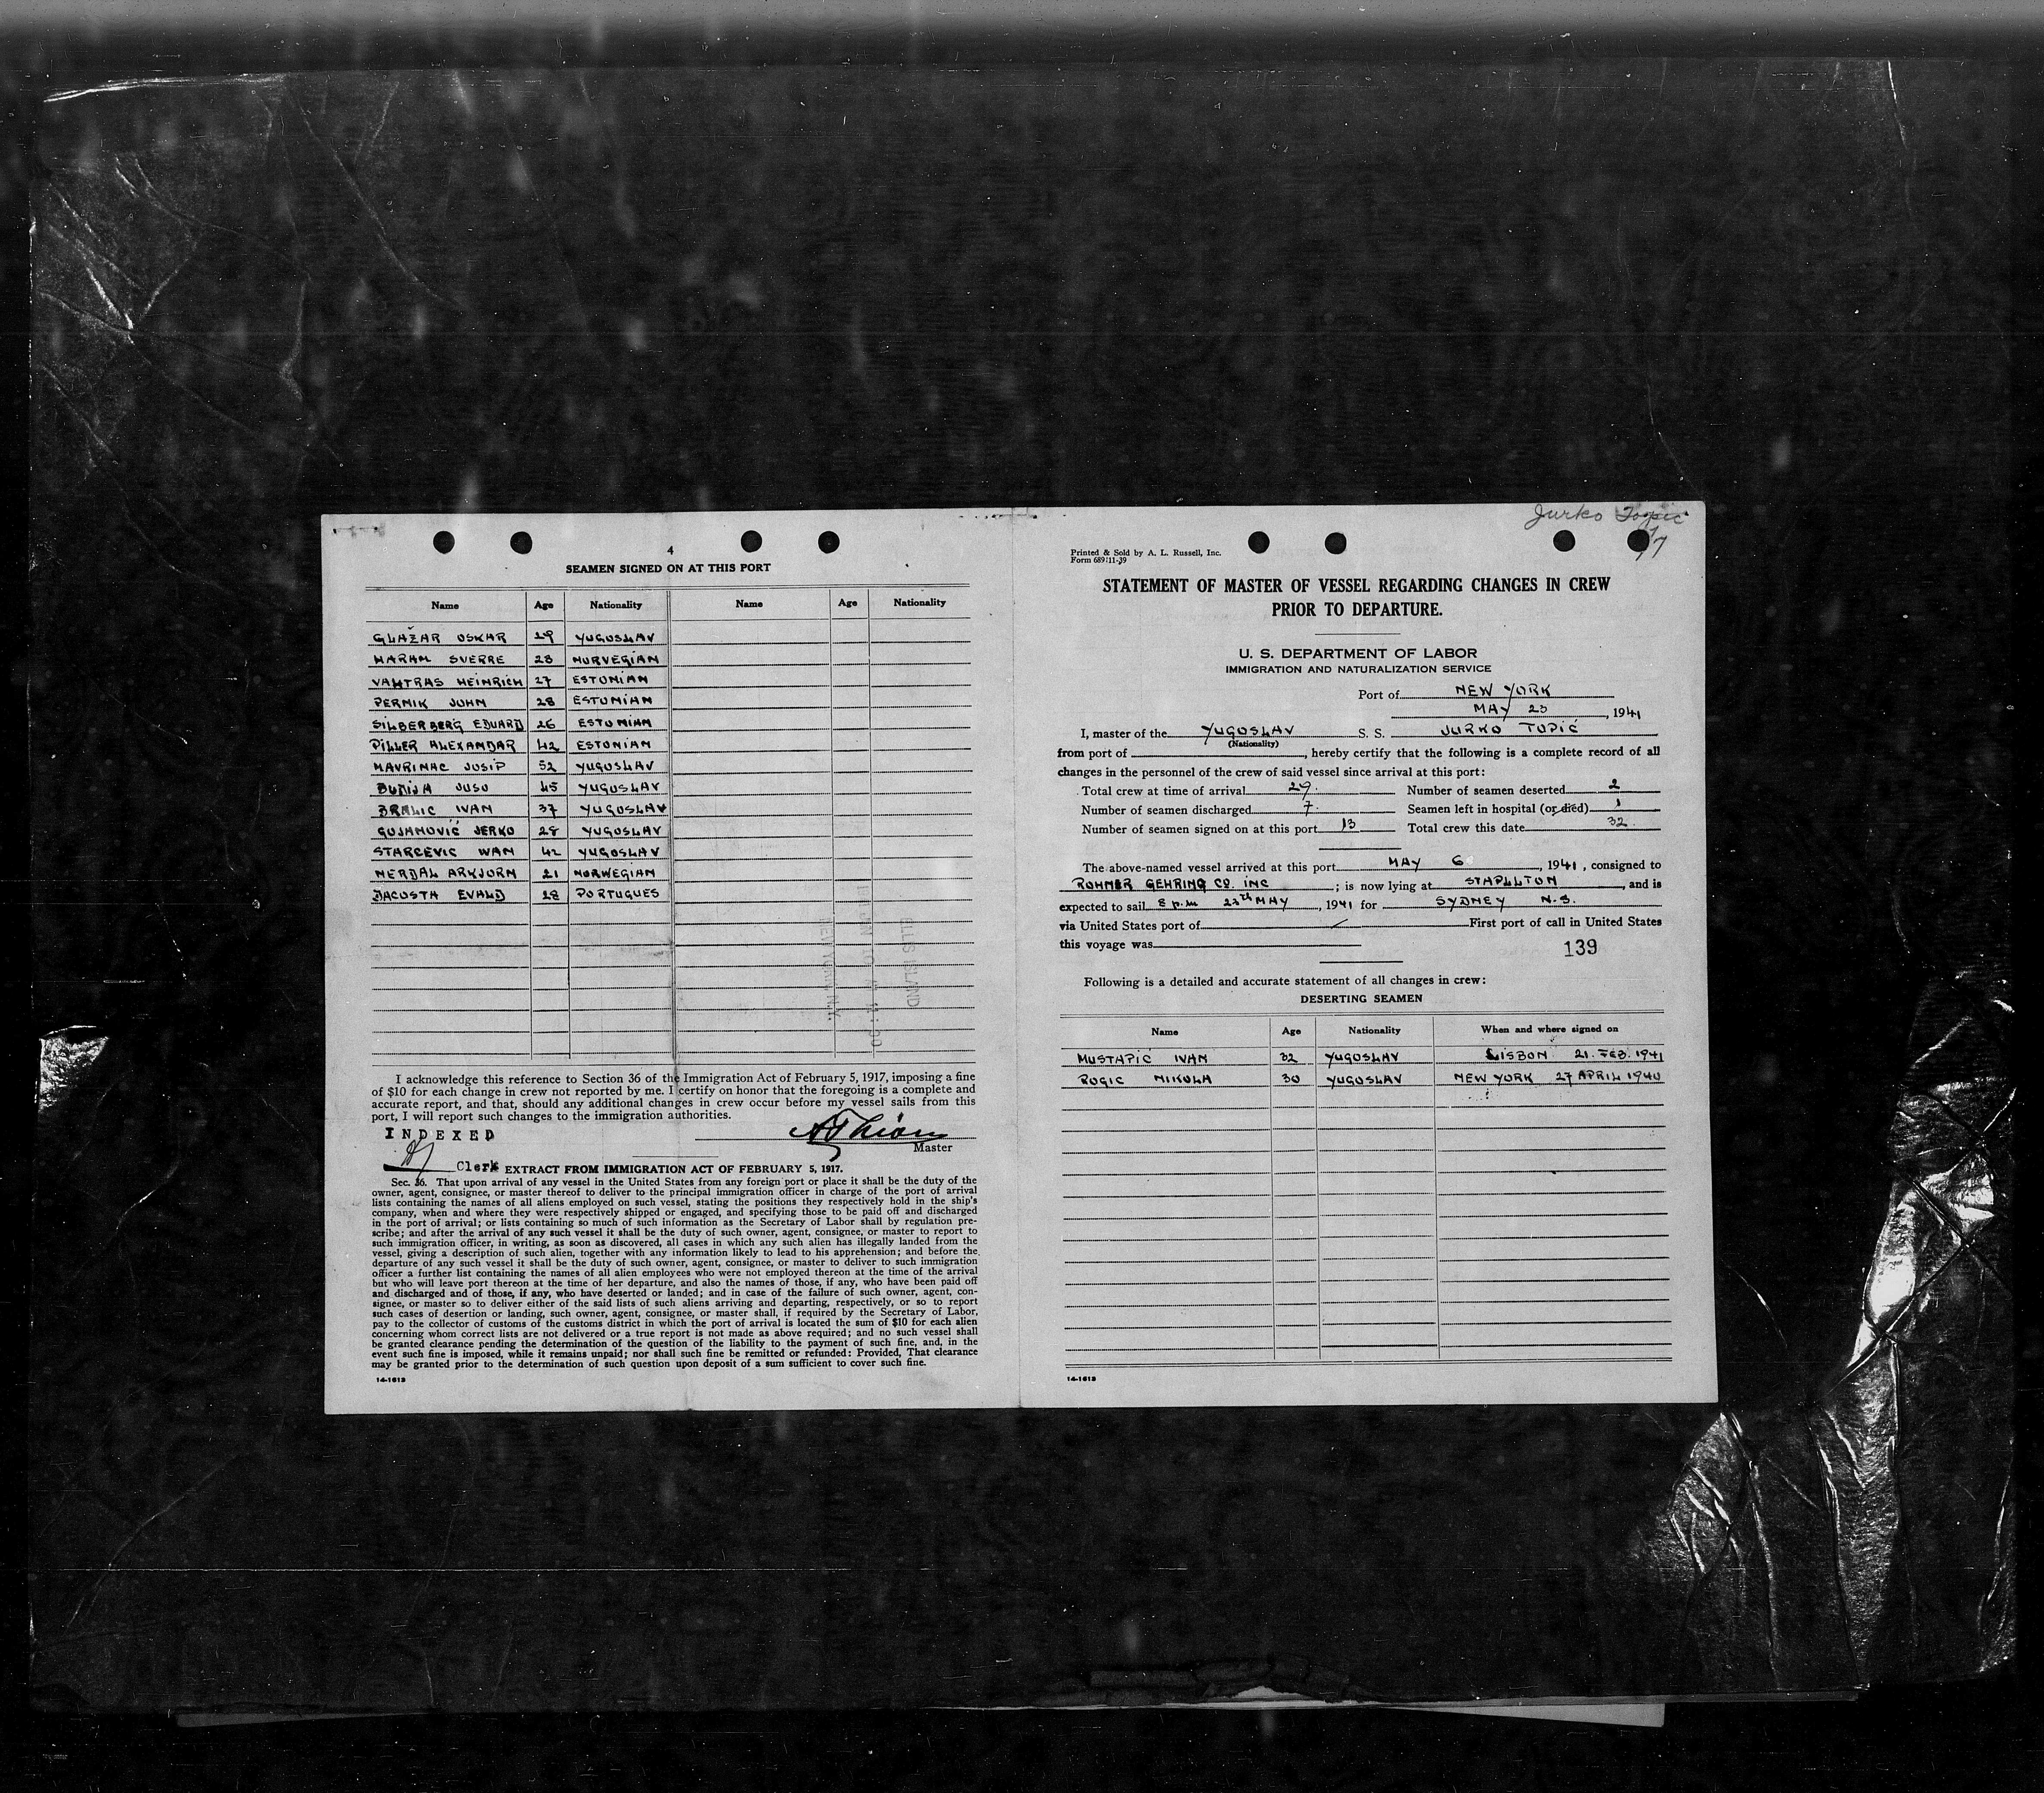 4
SEAMEN SIGNED ON AT THIS PORT
Name Age Nationality Name Age Nationality
GLAŽAR OSKAR 29 YUGOSLAV
HARAM SVERRE 28 NORVEGIAN
VAHTRAS HEINRICH 27 ESTONIAN
PERNIK JOHN 28 ESTONIAN
SILBERBERG EDUARD 26 ESTONIAN
PILLER ALEXANDAR 42 ESTONIAN
MAVRINAC JOSIP 52 YUGOSLAV
BUNIJA JOSO 45 YUGOSLAV
BRALIC IVAN 37 YUGOSLAV
GOJANOVIĆ JERKO 28 YUGOSLAV
STARCEVIC IVAN 42 YUGOSLAV
NERDAL ARKJORN 21 NORWEGIAN
DACOSTA EVALD 28 PORTUGUES
ELLIS ISLAND
I acknowledge this reference to Section 36 of the Immigration Act of February 5, 1917, imposing a fine
of $10 for each change in crew not reported by me. I certify on honor that the foregoing is a complete and
accurate report, and that, should any additional changes in crew occur before my vessel sails from this
port, I will report such changes to the immigration authorities.
INDEXED
Master
Clerk
EXTRACT FROM IMMIGRATION ACT OF FEBRUARY 5, 1917.
Sec. 36. That upon arrival of any vessel in the United States from any foreign port or place it shall be the duty of the
owner, agent, consignee, or master thereof to deliver to the principal immigration officer in charge of the port of arrival
lists containing the names of all aliens employed on such vessel, stating the positions they respectively hold in the ship's
company, when and where they were respectively shipped or engaged, and specifying those to be paid off and discharged
in the port of arrival; or lists containing so much of such information as the Secretary of Labor shall by regulation pre-
scribe; and after the arrival of any such vessel it shall be the duty of such owner, agent, consignee, or master to report to
such immigration officer, in writing, as soon as discovered, all cases in which any such alien has illegally landed from the
vessel, giving a description of such alien, together with any information likely to lead to his apprehension; and before the
departure of any such vessel it shall be the duty of such owner, agent, consignee, or master to deliver to such immigration
officer a further list containing the names of all alien employees who were not employed thereon at the time of the arrival
but who will leave port thereon at the time of her departure, and also the names of those, if any, who have been paid off
and discharged and of those, if any, who have deserted or landed; and in case of the failure of such owner, agent, con-
signee, or master so to deliver either of the said lists of such aliens arriving and departing, respectively, or so to report
such cases of desertion or landing, such owner, agent, consignee, or master shall, if required by the Secretary of Labor,
pay to the collector of customs of the customs district in which the port of arrival is located the sum of $10 for each alien
concerning whom correct lists are not delivered or a true report is not made as above required; and no such vessel shall
be granted clearance pending the determination of the question of the liability to the payment of such fine, and, in the
event such fine is imposed, while it remains unpaid; nor shall such fine be remitted or refunded: Provided, That clearance
may be granted prior to the determination of such question upon deposit of a sum sufficient to cover such fine.
14-1613
Jurko Topic
17
Printed & Sold by A. L. Russell, Inc.
Form 689:11-39
STATEMENT OF MASTER OF VESSEL REGARDING CHANGES IN CREW
PRIOR TO DEPARTURE.
U. S. DEPARTMENT OF LABOR
IMMIGRATION AND NATURALIZATION SERVICE
Port of NEW YORK
MAY 23, 1941
I, master of the YUGOSLAV S. S. JURKO TOPIĆ
(Nationality)
from port of , hereby certify that the following is a complete record of all
changes in the personnel of the crew of said vessel since arrival at this port:
Total crew at time of arrival 29. Number of seamen deserted 2
Number of seamen discharged 7. Seamen left in hospital (or died) 1
Number of seamen signed on at this port 13 Total crew this date 32.
The above-named vessel arrived at this port MAY 6, 1941, consigned to
ROHNER GEHRING CO. INC; is now lying at STAPLLTON, and is
expected to sail 8 p.m 23th MAY, 1941 for SYDNEY N.S.
via United States port of First port of call in United States
this voyage was
139
Following is a detailed and accurate statement of all changes in crew:
DESERTING SEAMEN
Name Age Nationality When and where signed on
MUSTAPIĆ IVAN 32 YUGOSLAV LISBON 21. FEB. 1941
ROGIC NIKOLA 30 YUGOSLAV NEW YORK 27 APRIL 1940
14-1613